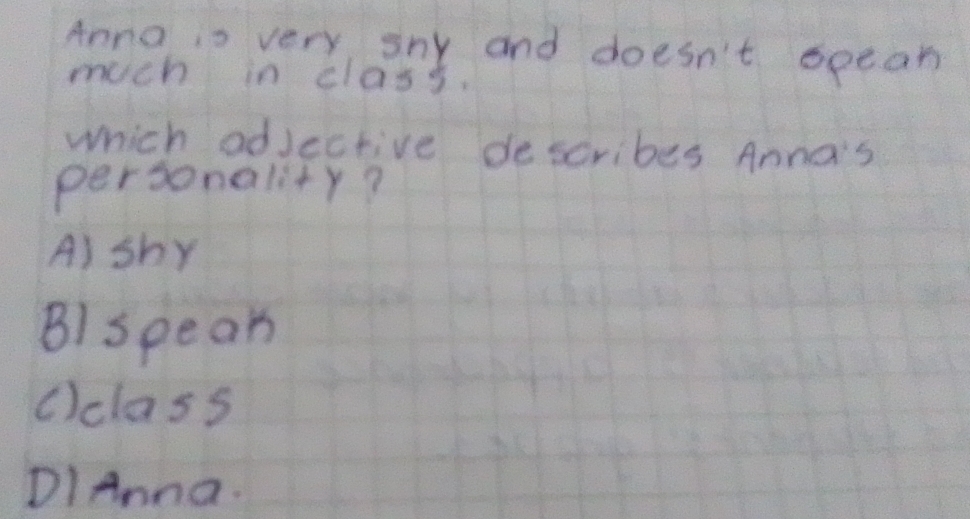 Anna is very shy and doesn't speak
much in class.
which adjective describes Anna's
personality?
A) shy
B) speak
C) class
D) Anna.